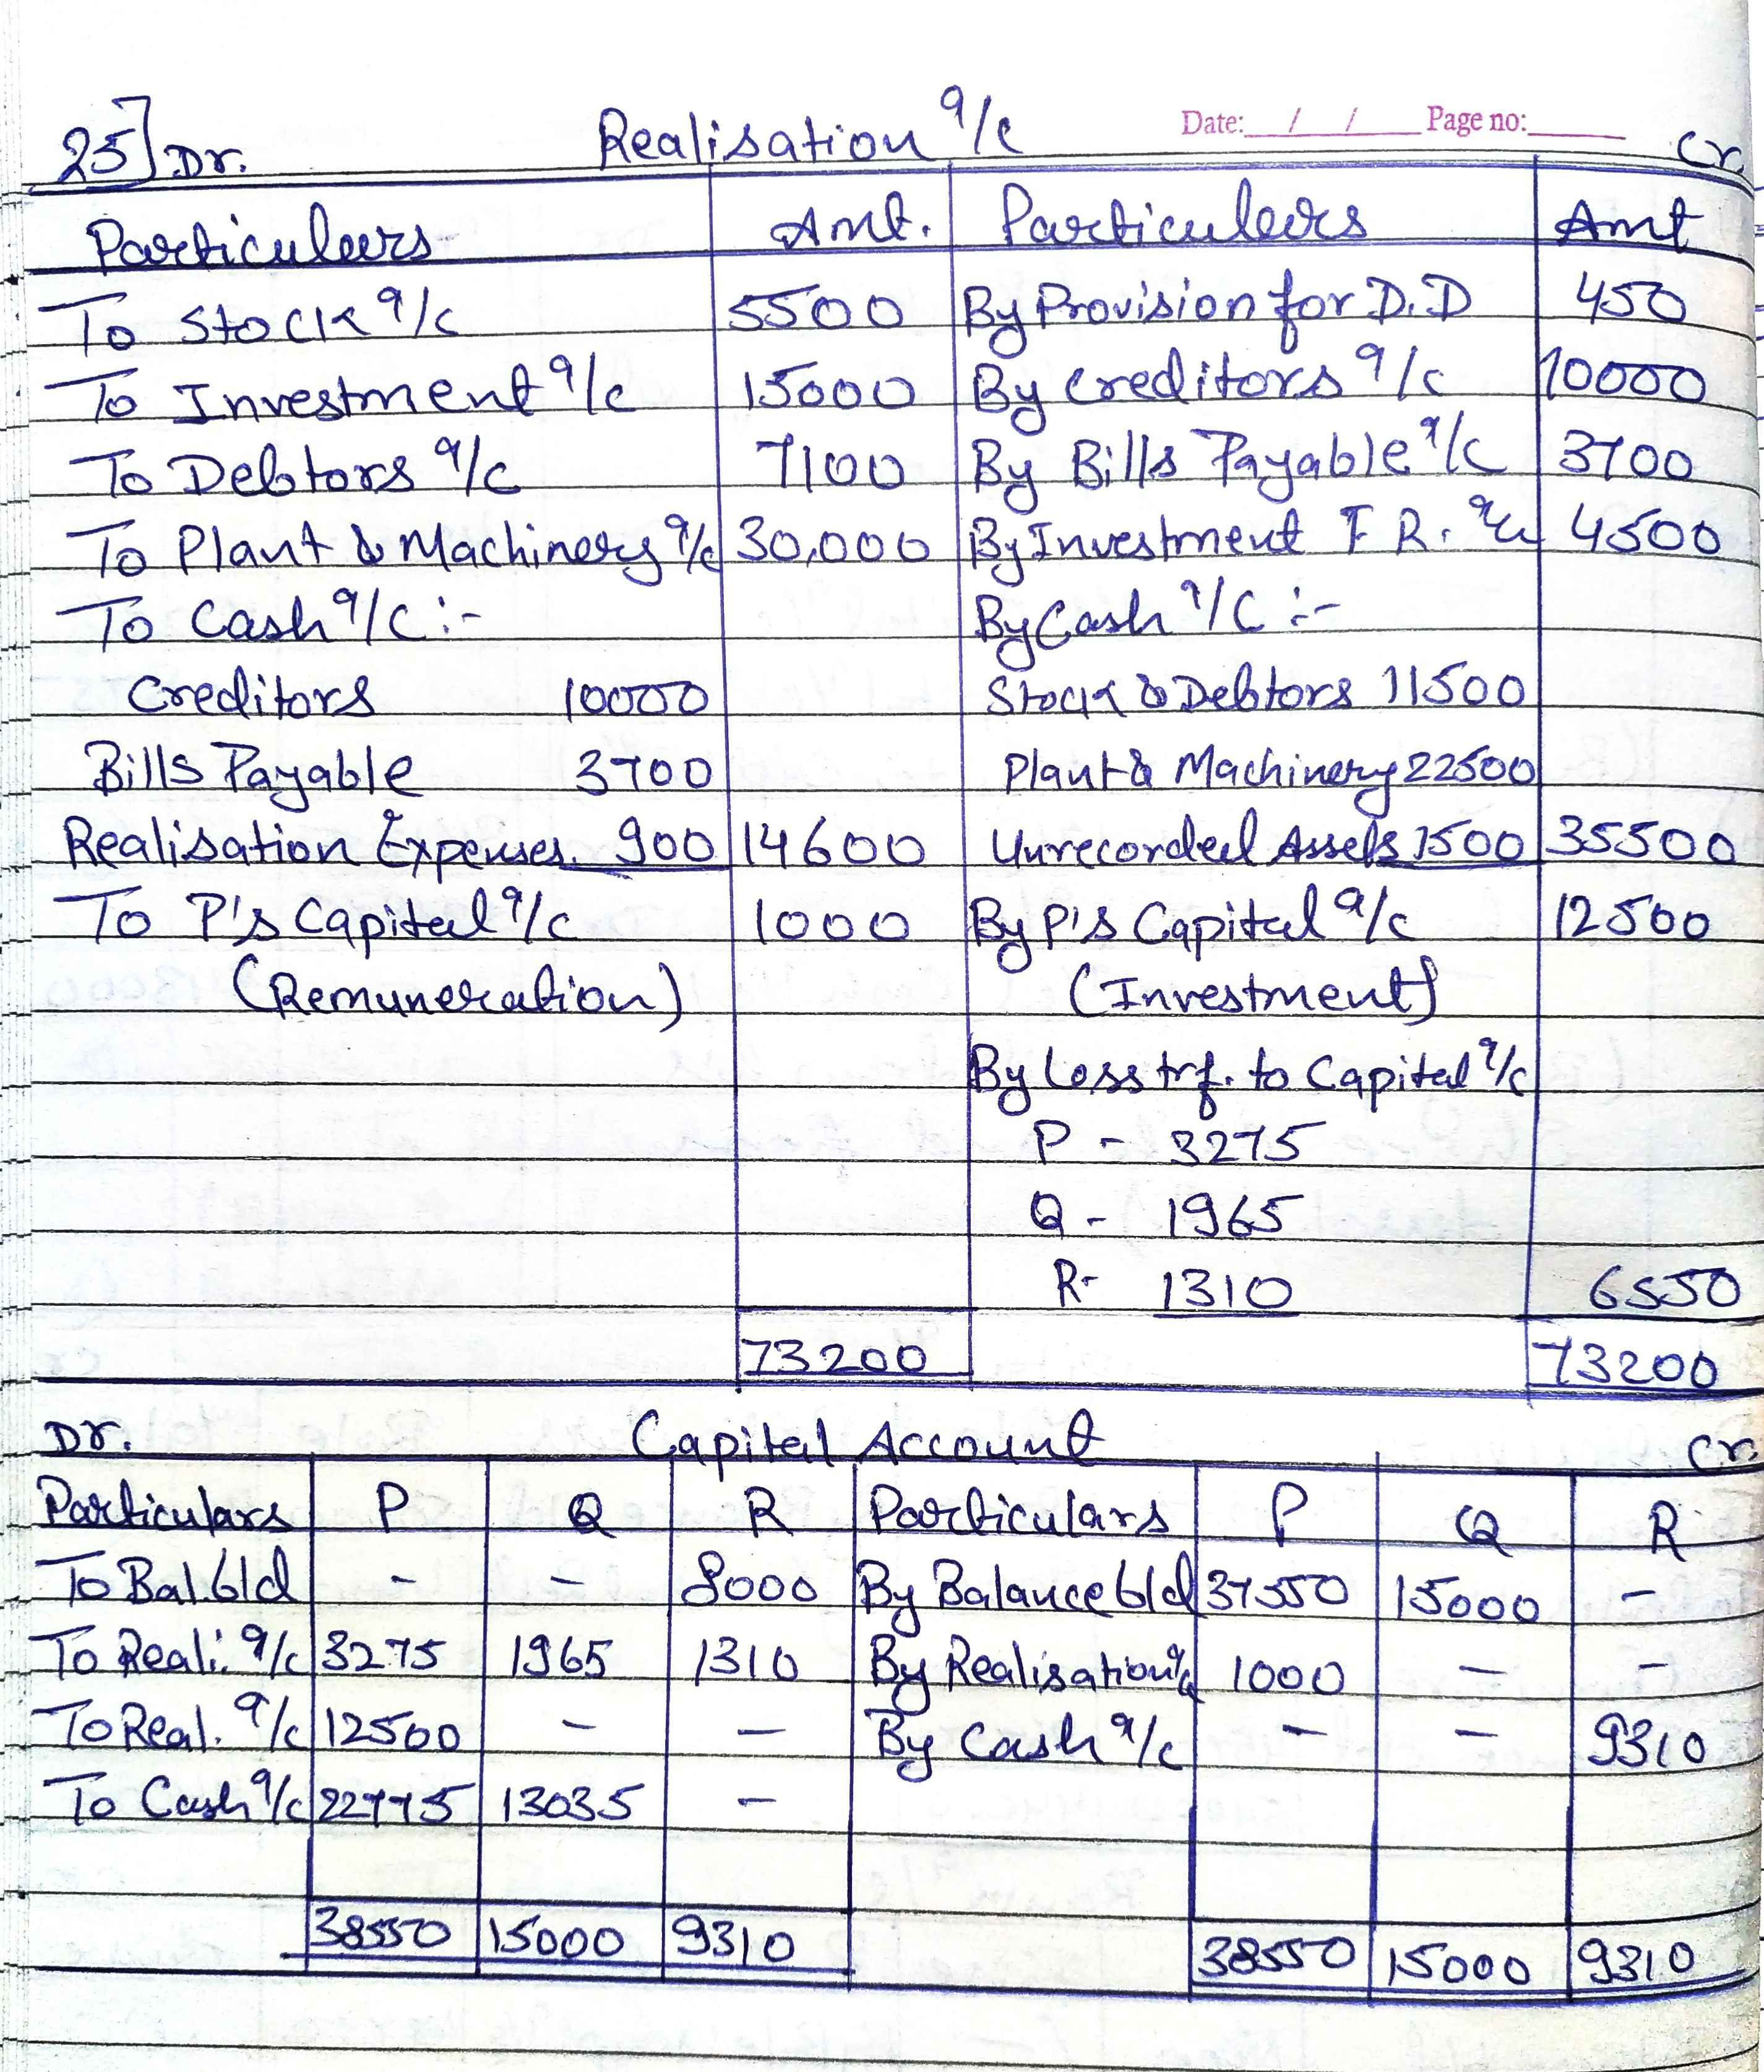 Date: / / Page no:
25] Dr. Realisation a/c Cr.
Particulars Amt. Particulars Amt
To Stock a/c 5500 By Provision for D.D 450
To Investment a/c 15000 By Creditors a/c 10000
To Debtors a/c 7100 By Bills Payable a/c 3700
To Plant & Machinery a/c 30,000 By Investment F R. a/c 4500
To Cash a/c :- By Cash a/c :-
Creditors 10000 Stock & Debtors 11500
Bills Payable 3700 Plant & Machinery 22500
Realisation Expenses. 900 14600 Unrecorded Assets 1500 35500
To P's Capital a/c 1000 By P's Capital a/c 12500
(Remuneration) (Investment)
By Loss trf. to Capital a/c
P - 3275
Q - 1965
R - 1310 6550
73200 73200
Dr. Capital Account Cr.
Particulars P Q R Particulars P Q R
To Bal. b/d - - 8000 By Balance b/d 37550 15000 -
To Reali. a/c 3275 1965 1310 By Realisation a/c 1000 - -
To Real. a/c 12500 - - By Cash a/c - - 9310
To Cash a/c 22775 13035 -
38550 15000 9310 38550 15000 9310